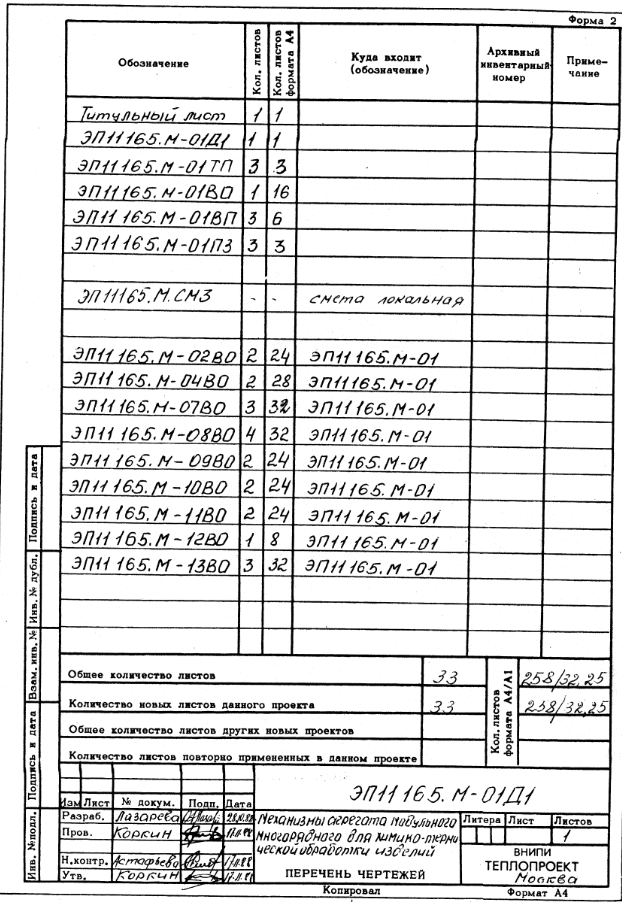 Форма 2
Обозначение Кол. листов Кол. листов формата А4 Куда входит (обозначение) Архивный инвентарный номер Приме-чание
Титульный лист 1 1
ЭП11165.М-01Д1 1 1
ЭП11165.М-01ТП 3 3
ЭП11165.М-01ВО 1 16
ЭП11165.М-01ВП 3 6
ЭП11165.М-01ПЗ 3 3
ЭП11165.М.СМ3 - - смета локальная
ЭП11165.М-02ВО 2 24 ЭП11165.М-01
ЭП11165.М-04ВО 2 28 ЭП11165.М-01
ЭП11165.М-07ВО 3 32 ЭП11165.М-01
ЭП11165.М-08ВО 4 32 ЭП11165.М-01
ЭП11165.М-09ВО 2 24 ЭП11165.М-01
ЭП11165.М-10ВО 2 24 ЭП11165.М-01
ЭП11165.М-11ВО 2 24 ЭП11165.М-01
ЭП11165.М-12ВО 1 8 ЭП11165.М-01
ЭП11165.М-13ВО 3 32 ЭП11165.М-01
Общее количество листов 33 Кол. листов формата А4/А1 258/32,25
Количество новых листов данного проекта 33 258/32,25
Общее количество листов других новых проектов
Количество листов повторно примененных в данном проекте
ЭП11165.М-01Д1
Изм Лист № докум. Подп. Дата
Разраб. Лазарева
Пров. Коркин 17.11.88
Н.контр. Астафьева 17.11.88
Утв. Коркин
Механизмы агрегата модульного
многорядного для химико-терми
ческой обработки изделий
ПЕРЕЧЕНЬ ЧЕРТЕЖЕЙ
Литера Лист Листов
1
ВНИПИ
ТЕПЛОПРОЕКТ
Москва
Копировал Формат А4
Инв. №подл. Подпись и дата Взам. инв. № Инв. № дубл. Подпись и дата